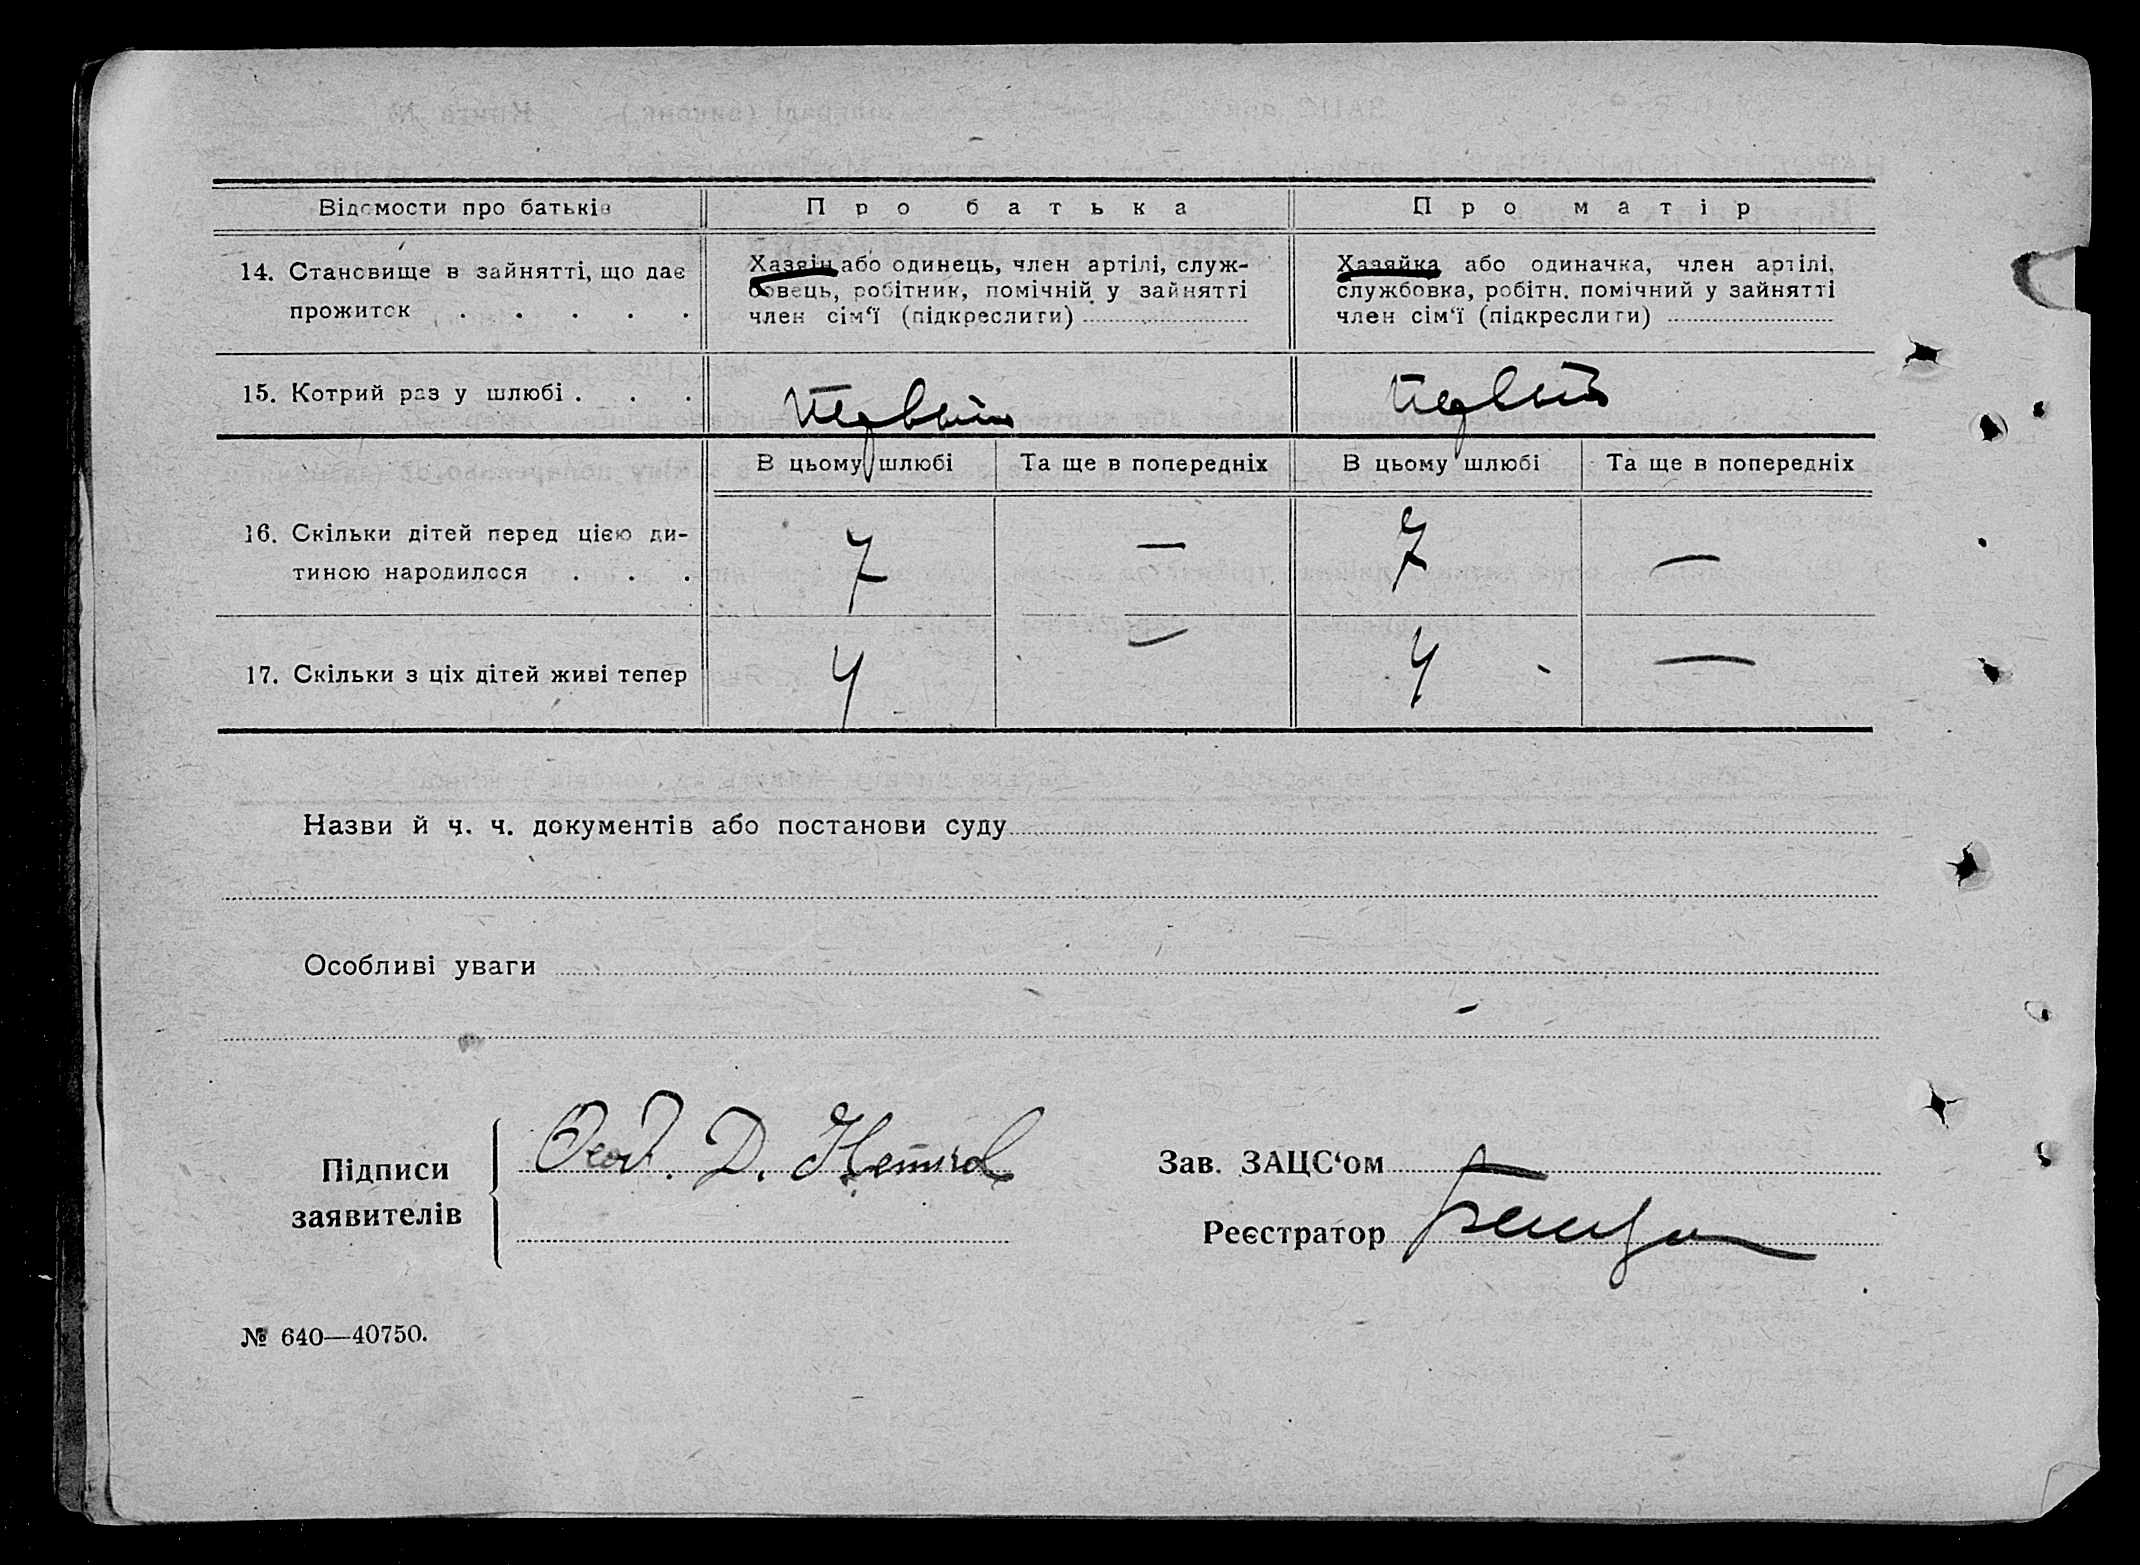 Відомости про батьків
Про батька
Про матір
14. Становище в зайнятті, що дає
прожиток . . . . .
Хазяїн або одинець, член артілі, служ-
бовець, робітник, помічній у зайнятті
член сім‘ї (підкреслити)
Хазяйка або одиначка, член артілі,
службовка, робітн. помічний у зайнятті
член сім‘ї (підкреслити)
15. Котрий раз у шлюбі . . .
Первый
Первый
В цьому шлюбі
Та ще в попередніх
В цьому шлюбі
Та ще в попередніх
16. Скільки дітей перед цією ди-
тиною народилося . . .
7
—
7
—
17. Скільки з ціх дітей живі тепер
4
—
4
—
Назви й ч. ч. документів або постанови суду
Особливі уваги
Підписи
заявителів
Д.
Зав. ЗАЦС‘ом
Реєстратор
№ 640—40750.